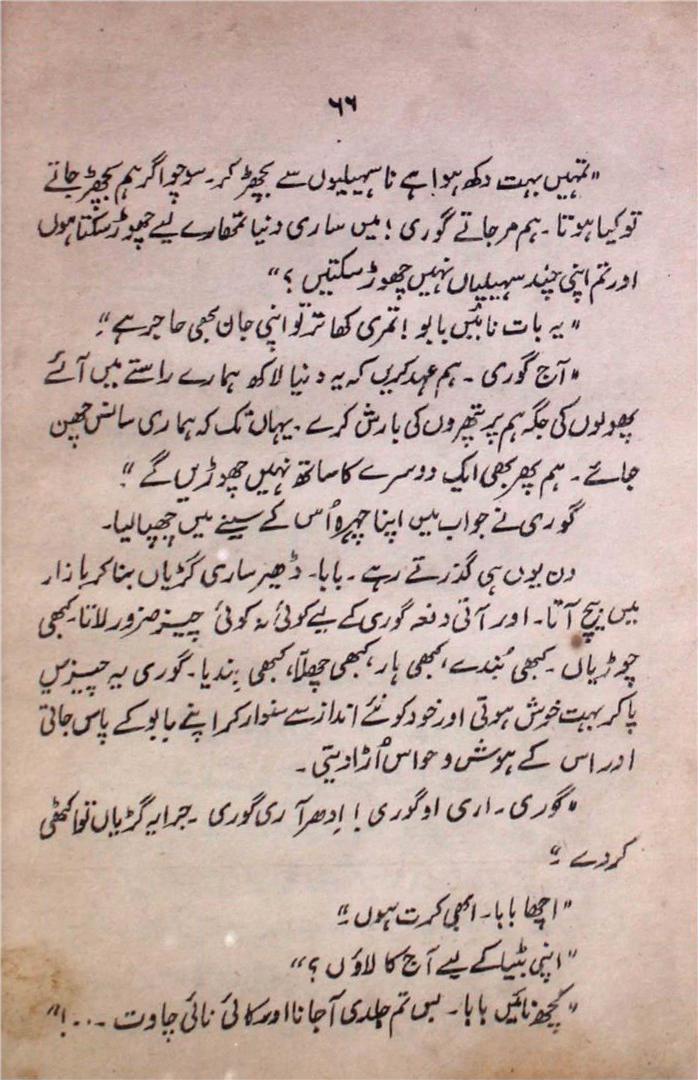 ۶۶
"تمہیں بہت دکھ ہوا ہے نا سہیلیوں سے بچھڑ کر۔ سوچو اگر ہم بچھڑ جاتے
تو کیا ہوتا۔ ہم مر جاتے گوری! میں ساری دنیا تمھارے لیے چھوڑ سکتا ہوں
اور تم اپنی چند سہیلیاں نہیں چھوڑ سکتیں؟"
"یہ بات ناہیں بابو! تمری کھاتر تو اپنی جان بھی حاجر ہے۔"
"آج گوری۔ ہم عہد کریں کہ یہ دنیا لاکھ ہمارے راستے میں آئے
پھولوں کی جگہ ہم پر پتھروں کی بارش کرے۔ یہاں تک کہ ہماری سانس چھن
جائے۔ ہم پھر بھی ایک دوسرے کا ساتھ نہیں چھوڑیں گے۔"
گوری نے جواب میں اپنا چہرہ اُس کے سینے میں چھپا لیا۔
دن یوں ہی گذرتے رہے۔ بابا۔ ڈھیر ساری گڑیاں بنا کر بازار
میں بیچ آتا۔ اور آتی دفعہ گوری کے لیے کوئی نہ کوئی چیز ضرور لاتا۔ کبھی
چوڑیاں۔ کبھی بُندے، کبھی ہار، کبھی چھلّا، کبھی بِندیا۔ گوری یہ چیزیں
پا کر بہت خوش ہوتی اور خود کو نئے انداز سے سنوار کر اپنے بابو کے پاس جاتی
اور اس کے ہوش و حواس اُڑا دیتی۔
"گوری۔ اری او گوری! اِدھر آ ری گوری۔ جرا یہ گڑیاں تو اکٹھی
کر دے۔"
"اچھا بابا۔ ابھی کرت ہوں۔"
"اپنی بٹیا کے لیے آج کا لاؤں؟"
"کچھ نائیں بابا۔ بس تم جلدی آ جانا اور کائی نائی چاوت۔۔۔!"